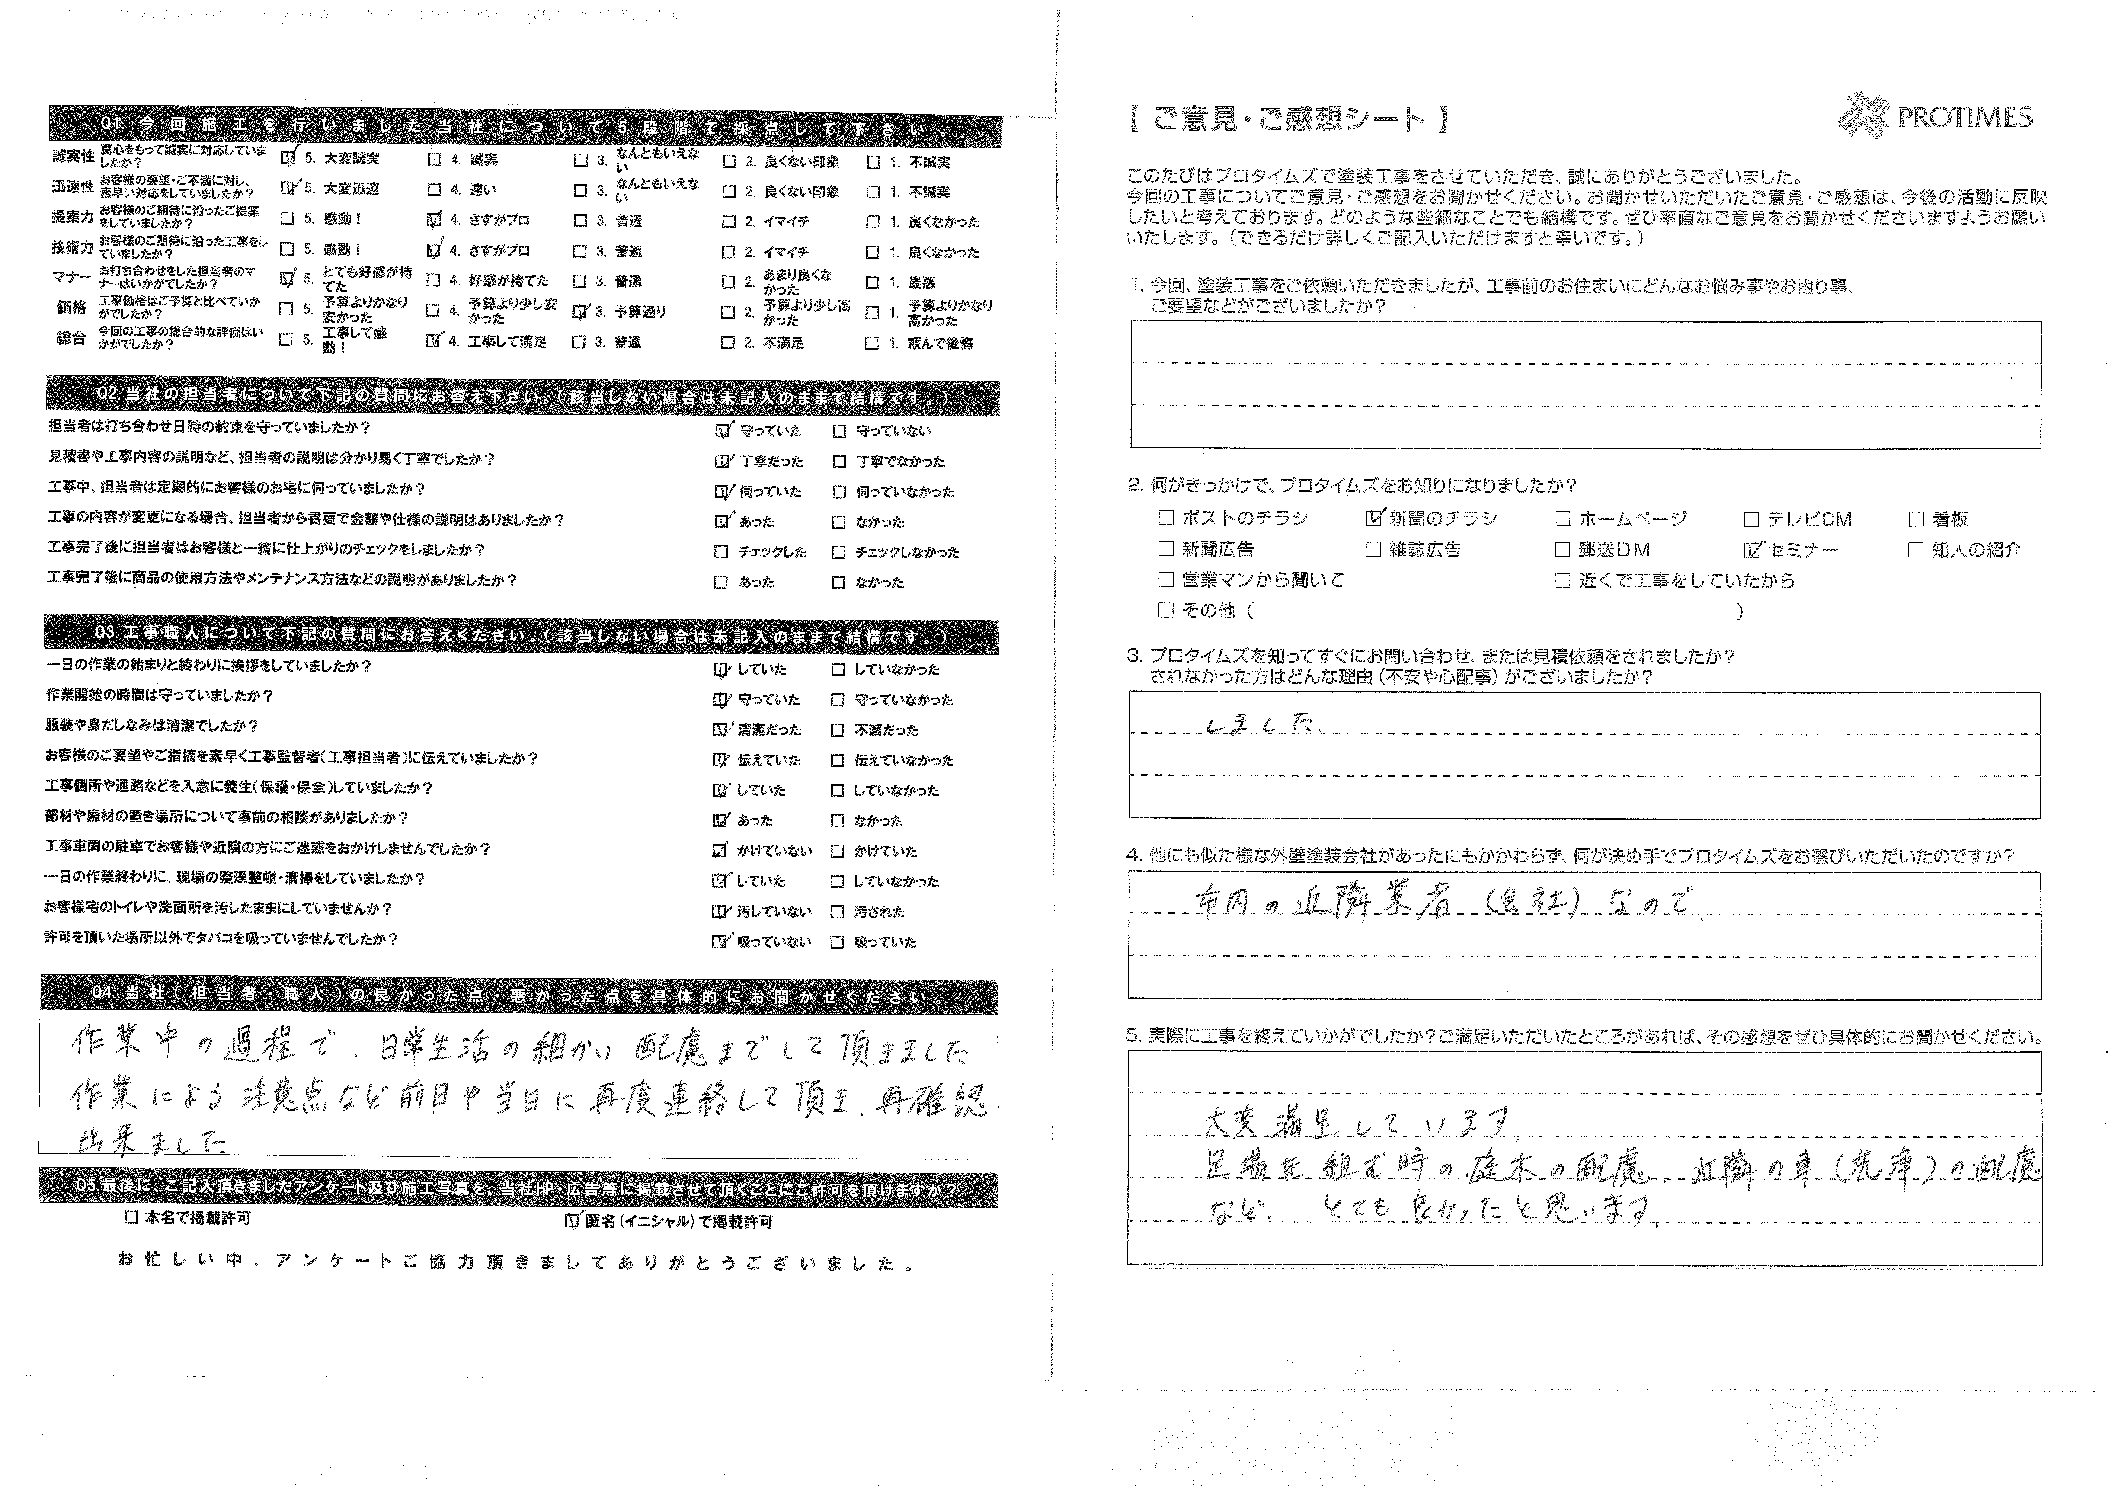 Q1 今回施工を行いました当社について5段階で採点して下さい
誠実性 真心をもって誠実に対応していましたか? ☑ 5. 大変誠実 □ 4. 誠実 □ 3. なんともいえない □ 2. 良くない印象 □ 1. 不誠実
迅速性 お客様の要望・ご不満に対し、素早い対応をしていましたか? ☑ 5. 大変迅速 □ 4. 速い □ 3. なんともいえない □ 2. 良くない印象 □ 1. 不誠実
提案力 お客様のご期待に沿ったご提案をしていましたか? □ 5. 感動! ☑ 4. さすがプロ □ 3. 普通 □ 2. イマイチ □ 1. 良くなかった
技術力 お客様のご期待に沿った工事をしていましたか? □ 5. 感動! ☑ 4. さすがプロ □ 3. 普通 □ 2. イマイチ □ 1. 良くなかった
マナー お打ち合わせをした担当者のマナーはいかがでしたか? ☑ 5. とても好感が持てた □ 4. 好感が持てた □ 3. 普通 □ 2. あまり良くなかった □ 1. 最悪
価格 工事価格はご予算と比べていかがでしたか? □ 5. 予算よりかなり安かった □ 4. 予算より少し安かった ☑ 3. 予算通り □ 2. 予算より少し高かった □ 1. 予算よりかなり高かった
総合 今回の工事の総合的な評価はいかがでしたか? □ 5. 工事して感動! ☑ 4. 工事して満足 □ 3. 普通 □ 2. 不満足 □ 1. 頼んで後悔
Q2 当社の担当者について下記の質問にお答え下さい。(該当しない場合は未記入のままで結構です。)
担当者は打ち合わせ日時の約束を守っていましたか? ☑ 守っていた □ 守っていない
見積書や工事内容の説明など、担当者の説明は分かり易く丁寧でしたか? ☑ 丁寧だった □ 丁寧でなかった
工事中、担当者は定期的にお客様のお宅に伺っていましたか? ☑ 伺っていた □ 伺っていなかった
工事の内容が変更になる場合、担当者から書面で金額や仕様の説明はありましたか? ☑ あった □ なかった
工事完了後に担当者はお客様と一緒に仕上がりのチェックをしましたか? □ チェックした □ チェックしなかった
工事完了後に商品の使用方法やメンテナンス方法などの説明がありましたか? □ あった □ なかった
Q3 工事職人について下記の質問にお答えください。(該当しない場合は未記入のままで結構です。)
一日の作業の始まりと終わりに挨拶をしていましたか? ☑ していた □ していなかった
作業開始の時間は守っていましたか? ☑ 守っていた □ 守っていなかった
服装や身だしなみは清潔でしたか? ☑ 清潔だった □ 不潔だった
お客様のご要望やご指摘を素早く工事監督者(工事担当者)に伝えていましたか? ☑ 伝えていた □ 伝えていなかった
工事個所や通路などを入念に養生(保護・保全)していましたか? ☑ していた □ していなかった
部材や廃材の置き場所について事前の相談がありましたか? ☑ あった □ なかった
工事車両の駐車でお客様や近隣の方にご迷惑をおかけしませんでしたか? ☑ かけていない □ かけていた
一日の作業終わりに、現場の整理整頓・清掃をしていましたか? ☑ していた □ していなかった
お客様宅のトイレや洗面所を汚したままにしていませんか? ☑ 汚していない □ 汚された
許可を頂いた場所以外でタバコを吸っていませんでしたか? ☑ 吸っていない □ 吸っていた
Q4 当社(担当者・職人)の良かった点・悪かった点を具体的にお聞かせください
作業中の過程で、日常生活の細かい配慮までして頂きました
作業による注意点など前日や当日に再度連絡して頂き、再確認
出来ました
Q5 最後に、ご記入頂きましたアンケート及び施工写真を、当社HP・広告等に掲載させて頂くことにご許可を頂けますか?
□ 本名で掲載許可 ☑ 匿名(イニシャル)で掲載許可
お忙しい中、アンケートご協力頂きましてありがとうございました。
【 ご意見・ご感想シート 】
PROTIMES
このたびはプロタイムズで塗装工事をさせていただき、誠にありがとうございました。
今回の工事についてご意見・ご感想をお聞かせください。お聞かせいただいたご意見・ご感想は、今後の活動に反映
したいと考えております。どのような些細なことでも結構です。ぜひ率直なご意見をお聞かせくださいますようお願い
いたします。(できるだけ詳しくご記入いただけますと幸いです。)
1. 今回、塗装工事をご依頼いただきましたが、工事前のお住まいにどんなお悩み事やお困り事、
ご要望などがございましたか?
2. 何がきっかけで、プロタイムズをお知りになりましたか?
□ ポストのチラシ ☑ 新聞のチラシ □ ホームページ □ テレビCM □ 看板
□ 新聞広告 □ 雑誌広告 □ 郵送DM ☑ セミナー □ 知人の紹介
□ 営業マンから聞いて □ 近くで工事をしていたから
□ その他 ( )
3. プロタイムズを知ってすぐにお問い合わせ、または見積依頼をされましたか?
されなかった方はどんな理由(不安や心配事)がございましたか?
しました。
4. 他にも似た様な外壁塗装会社があったにもかかわらず、何が決め手でプロタイムズをお選びいただいたのですか?
市内の近隣業者(会社)なので。
5. 実際に工事を終えていかがでしたか?ご満足いただいたところがあれば、その感想をぜひ具体的にお聞かせください。
大変満足しています。
足場を組む時の庭木の配慮、近隣の車(洗車)の配慮
など、とても良かったと思います。